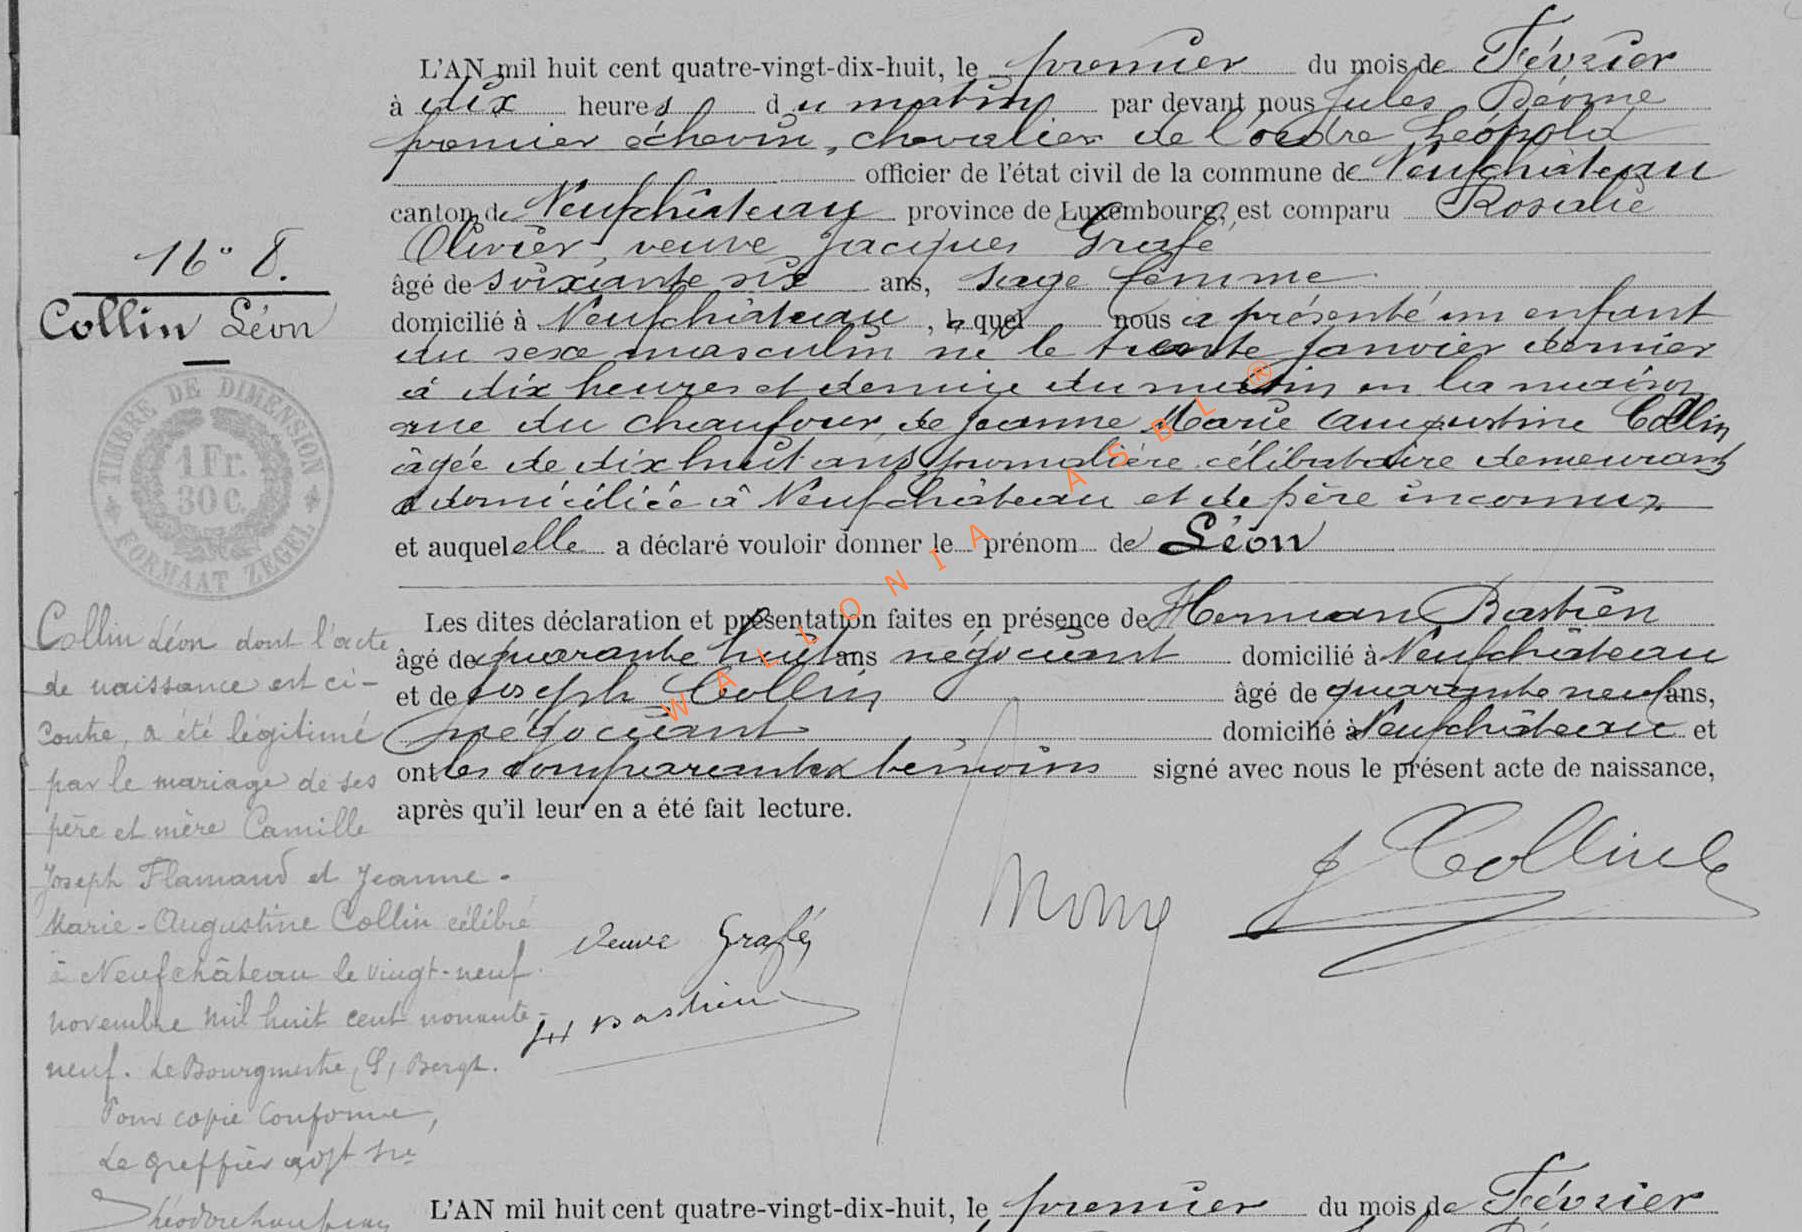 L'AN mil huit cent quatre-vingt-dix-huit, le premier du mois de Février
à dix heures du matin par devant nous Jules
premier échevin, chevalier de l'ordre Léopold
officier de l'état civil de la commune de Neufchâteau
canton de Neufchâteau province de Luxembourg, est comparu Rosalie
Olivier, veuve Jacques Grafé
âgé de soixante six ans, sage femme
domicilié à Neufchâteau, laquel nous a présenté un enfant
du sexe masculin né le trente janvier dernier
à dix heures et demie du matin en la maison
rue du chaufour, de Jeanne Marie Augustine Collin
âgée de dix huit ans, journalière célibataire demeurant
domiciliée à Neufchâteau et de père inconnu
et auquel elle a déclaré vouloir donner le prénom de Léon
Les dites déclaration et présentation faites en présence de Herman Bastien
âgé de quarante huit ans négociant domicilié à Neufchâteau
et de Joseph Collin âgé de quarante neuf ans,
négociant domicilié à Neufchâteau et
ont les comparante témoins signé avec nous le présent acte de naissance,
après qu'il leur en a été fait lecture.
J Collin
Veuve Grafé
Bastien
16° 8.
Collin Léon
TIMBRE DE DIMENSION
1 Fr.
30 C.
FORMAAT ZEGEL
Collin Léon dont l'acte
de naissance est ci-
contre, a été légitimé
par le mariage de ses
père et mère Camille
Joseph Flamand et Jeanne-
Marie-Augustine Collin célébré
à Neufchâteau le vingt-neuf
novembre mil huit cent nonante-
neuf. Le Bourgmestre, (S)
Pour copie conforme,
Le greffier adjt
WALLONIA ASBL ®
L'AN mil huit cent quatre-vingt-dix-huit, le premier du mois de Février